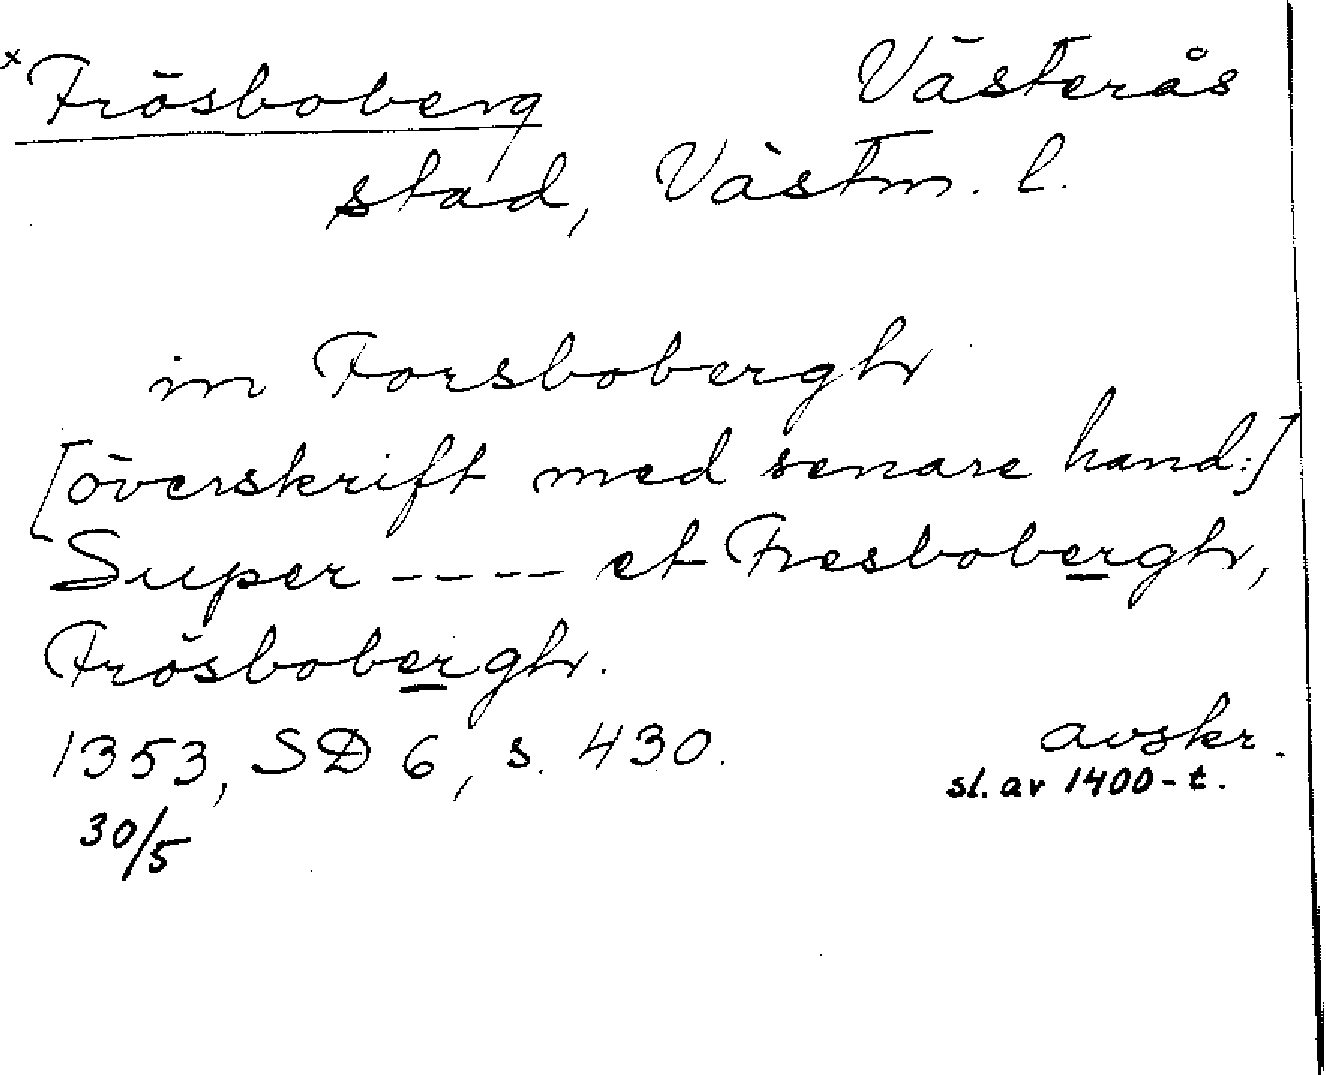 x Frösboberg Västerås
stad, Västm. l.
in Forsbobergh
[överskrift med senare hand:]
Super ---- et Fresbobergh,
Frösbobergh.
1353, SD 6, s. 430. avskr.
30/5 sl. av 1400-t.